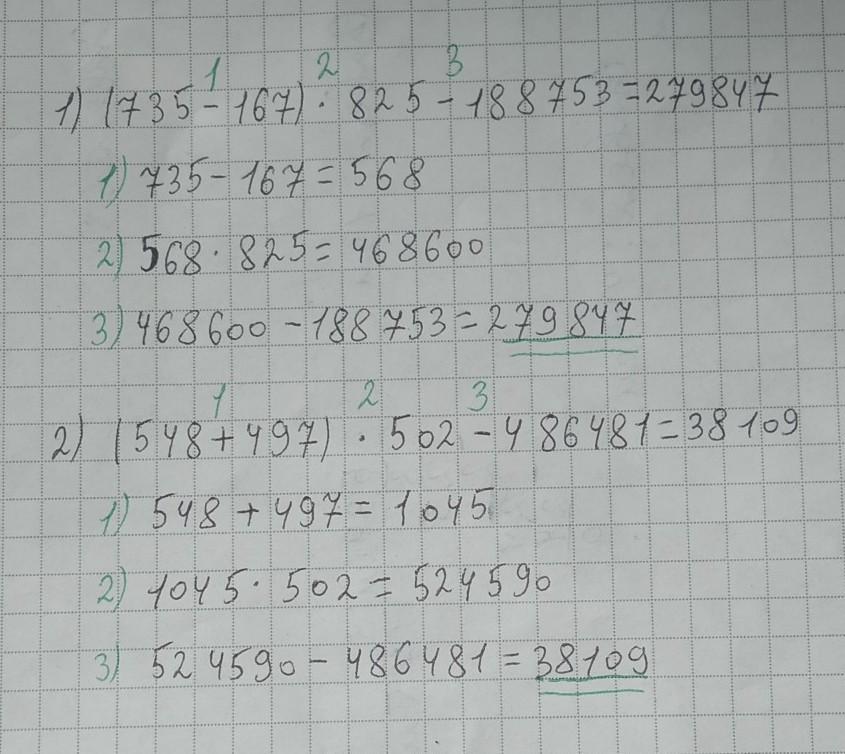 1 2 3
1) (735 - 167) · 825 - 188753 = 279847
1) 735 - 167 = 568
2) 568 · 825 = 468600
3) 468600 - 188753 = 279847
1 2 3
2) (548 + 497) · 502 - 486481 = 38109
1) 548 + 497 = 1045
2) 1045 · 502 = 524590
3) 524590 - 486481 = 38109